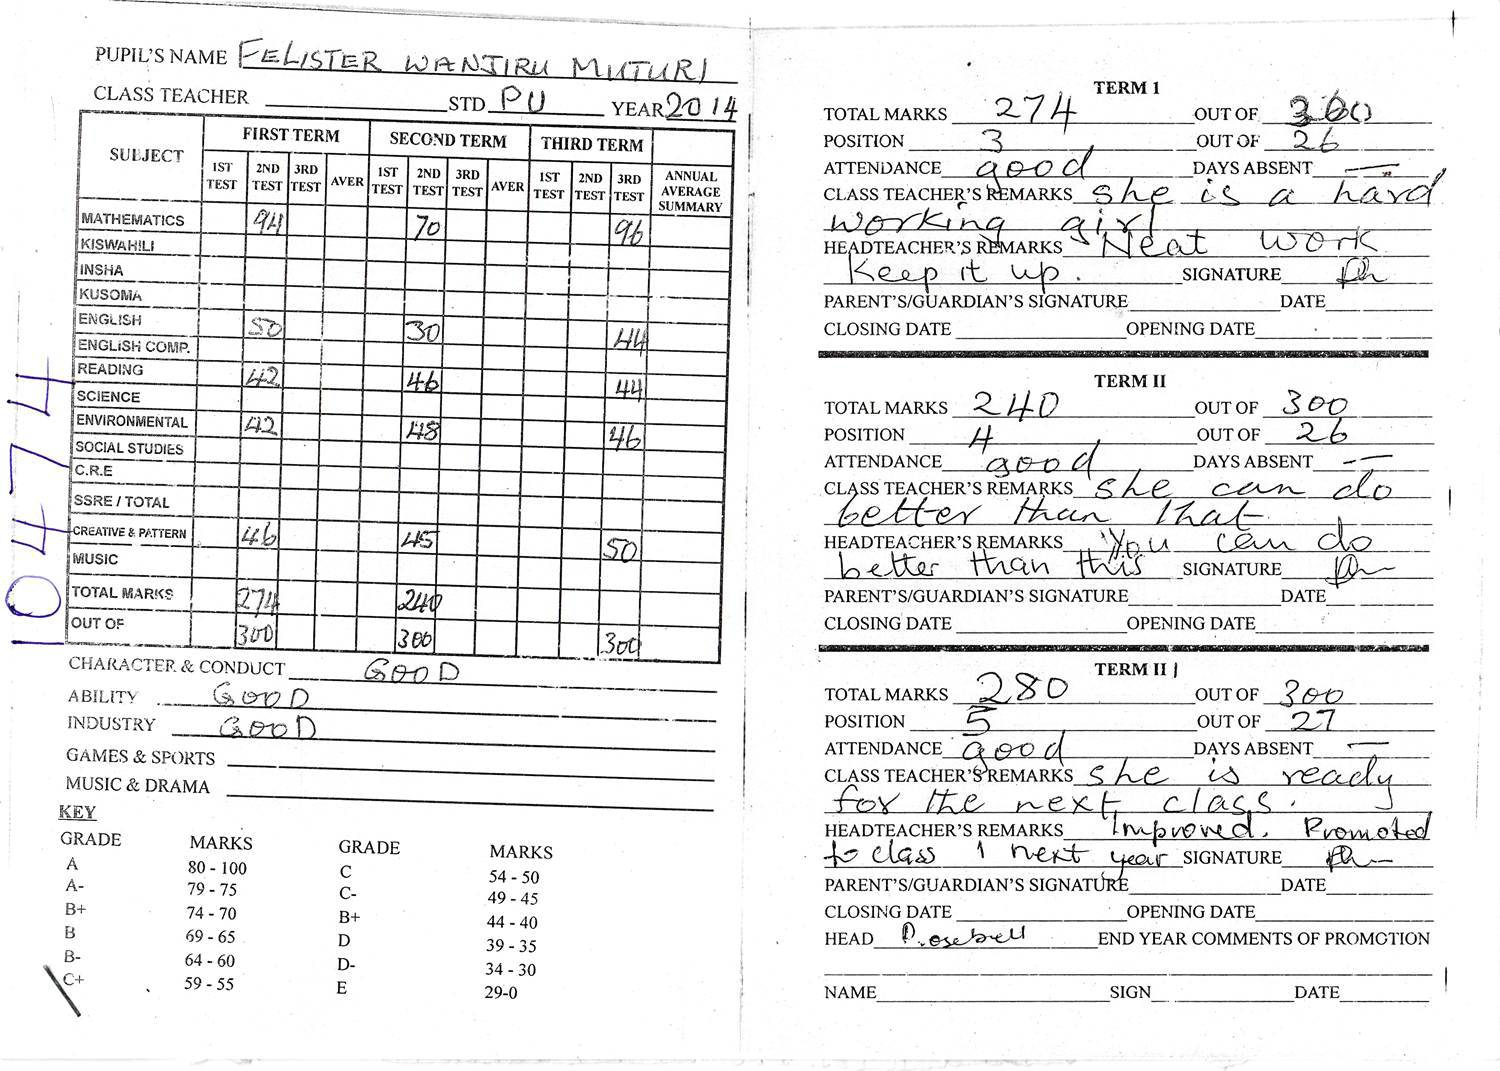 PUPIL'S NAME FELISTER WANJIRU MUTURI
CLASS TEACHER STD PU YEAR 2014
SUBJECT FIRST TERM SECOND TERM THIRD TERM
1ST TEST 2ND TEST 3RD TEST AVER 1ST TEST 2ND TEST 3RD TEST AVER 1ST TEST 2ND TEST 3RD TEST ANNUAL AVERAGE SUMMARY
MATHEMATICS 94 70 96
KISWAHILI
INSHA
KUSOMA
ENGLISH 50 30 44
ENGLISH COMP.
READING 42 46 44
SCIENCE
ENVIRONMENTAL 42 48 46
SOCIAL STUDIES
C.R.E
SSRE / TOTAL
CREATIVE & PATTERN 46 45 50
MUSIC
TOTAL MARKS 274 240
OUT OF 300 300 300
10474
CHARACTER & CONDUCT GOOD
ABILITY GOOD
INDUSTRY GOOD
GAMES & SPORTS
MUSIC & DRAMA
KEY
GRADE MARKS GRADE MARKS
A 80 - 100 C 54 - 50
A- 79 - 75 C- 49 - 45
B+ 74 - 70 B+ 44 - 40
B 69 - 65 D 39 - 35
B- 64 - 60 D- 34 - 30
C+ 59 - 55 E 29-0
TERM 1
TOTAL MARKS 274 OUT OF 300
POSITION 3 OUT OF 26
ATTENDANCE good DAYS ABSENT —
CLASS TEACHER'S REMARKS She is a hard
working girl
HEADTEACHER'S REMARKS Neat work
Keep it up. SIGNATURE
PARENT'S/GUARDIAN'S SIGNATURE DATE
CLOSING DATE OPENING DATE
TERM II
TOTAL MARKS 240 OUT OF 300
POSITION 4 OUT OF 26
ATTENDANCE good DAYS ABSENT —
CLASS TEACHER'S REMARKS She can do
better than that
HEADTEACHER'S REMARKS You can do
better than this SIGNATURE
PARENT'S/GUARDIAN'S SIGNATURE DATE
CLOSING DATE OPENING DATE
TERM III
TOTAL MARKS 280 OUT OF 300
POSITION 5 OUT OF 27
ATTENDANCE good DAYS ABSENT —
CLASS TEACHER'S REMARKS She is ready
for the next class.
HEADTEACHER'S REMARKS Improved. Promoted
to class 1 next year SIGNATURE
PARENT'S/GUARDIAN'S SIGNATURE DATE
CLOSING DATE OPENING DATE
HEAD END YEAR COMMENTS OF PROMOTION
NAME SIGN DATE